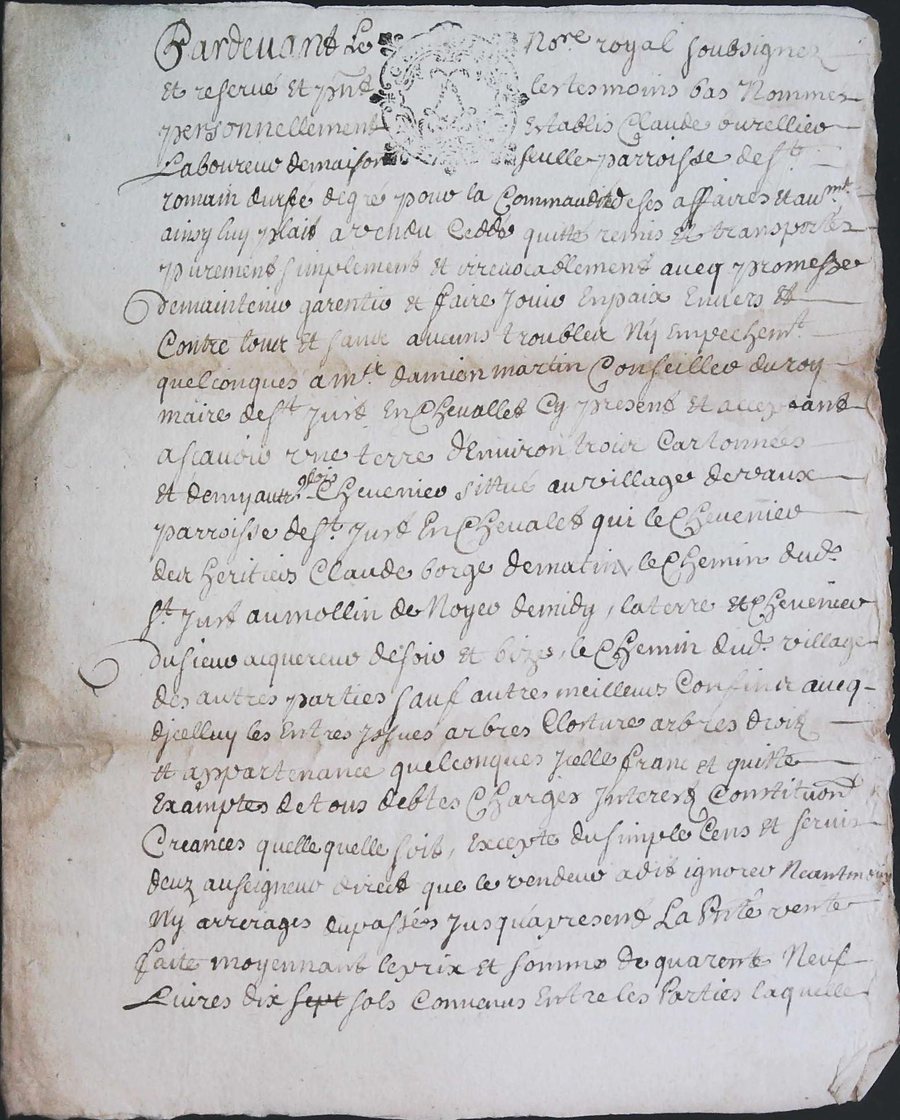 Pardevant Le No.re royal soubsignez
et reservé et pnt les tesmoins bas Nommes
personnellement Establis Claude
Laboureur de maison seulle parroisse de s.t
romain durfé de gré pour la Commodité de ses affaires et
ainsy luy plait a vendu Ceddé quitte remis et transportes
purement simplement et irrevocadlement avecq promesse
de maintenir garentir et faire Jouir En paix Envers et
Contre tout et sans aucuns troubler Ny Empechem.t
quelconques a damien martin Conseiller du roy
maire de s.t Just En Chevallet Cy present et acceptant
ascavoir une terre dEnviron trois Cartonnées
et demy Chevenier sittué au village de vaux
parroisse de s.t Just En Chevalet qui le Chevenier
des heritiers Claude borge de matin, le Chemin dud.
s.t Just au mollin de Noyer de midy, la terre et Chevenier
du sieur acquereur de soir et bize, le Chemin dud. village
des autres parties sauf autres meilleurs Confins avecq
djcelluy les Entres jssues arbres Clorture arbres droit
et appartenance quelconques jcelle franc et quitte
Exampte de tous debtes Charges Jnterest Constitution
Creances quelle quelle soit, Excepte du simple Cens et servis
deuz au seigneur direct que le vendeur a dit ignorer Neantmoin
Ny arrerages du passées Jusqu'apresent La pnte vente
faite moyennant le prix et somme de quarente Neuf
Livres dix sept sols Convenus Entre les Parties laquelle